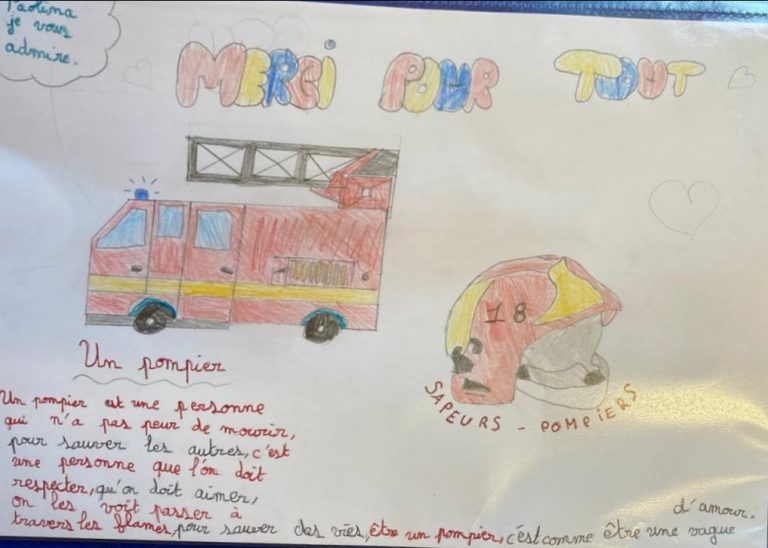 Paolina
je vous
admire.
MERCI POUR TOUT
18
SAPEURS - POMPIERS
Un pompier
Un pompier est une personne
qui n'a pas peur de mourir,
pour sauver les autres, c'est
une personne que l'on doit
respecter, qu'on doit aimer,
on les voit passer à
travers les flames, pour sauver des vies, être un pompier, c'est comme être une vague
d'amour.